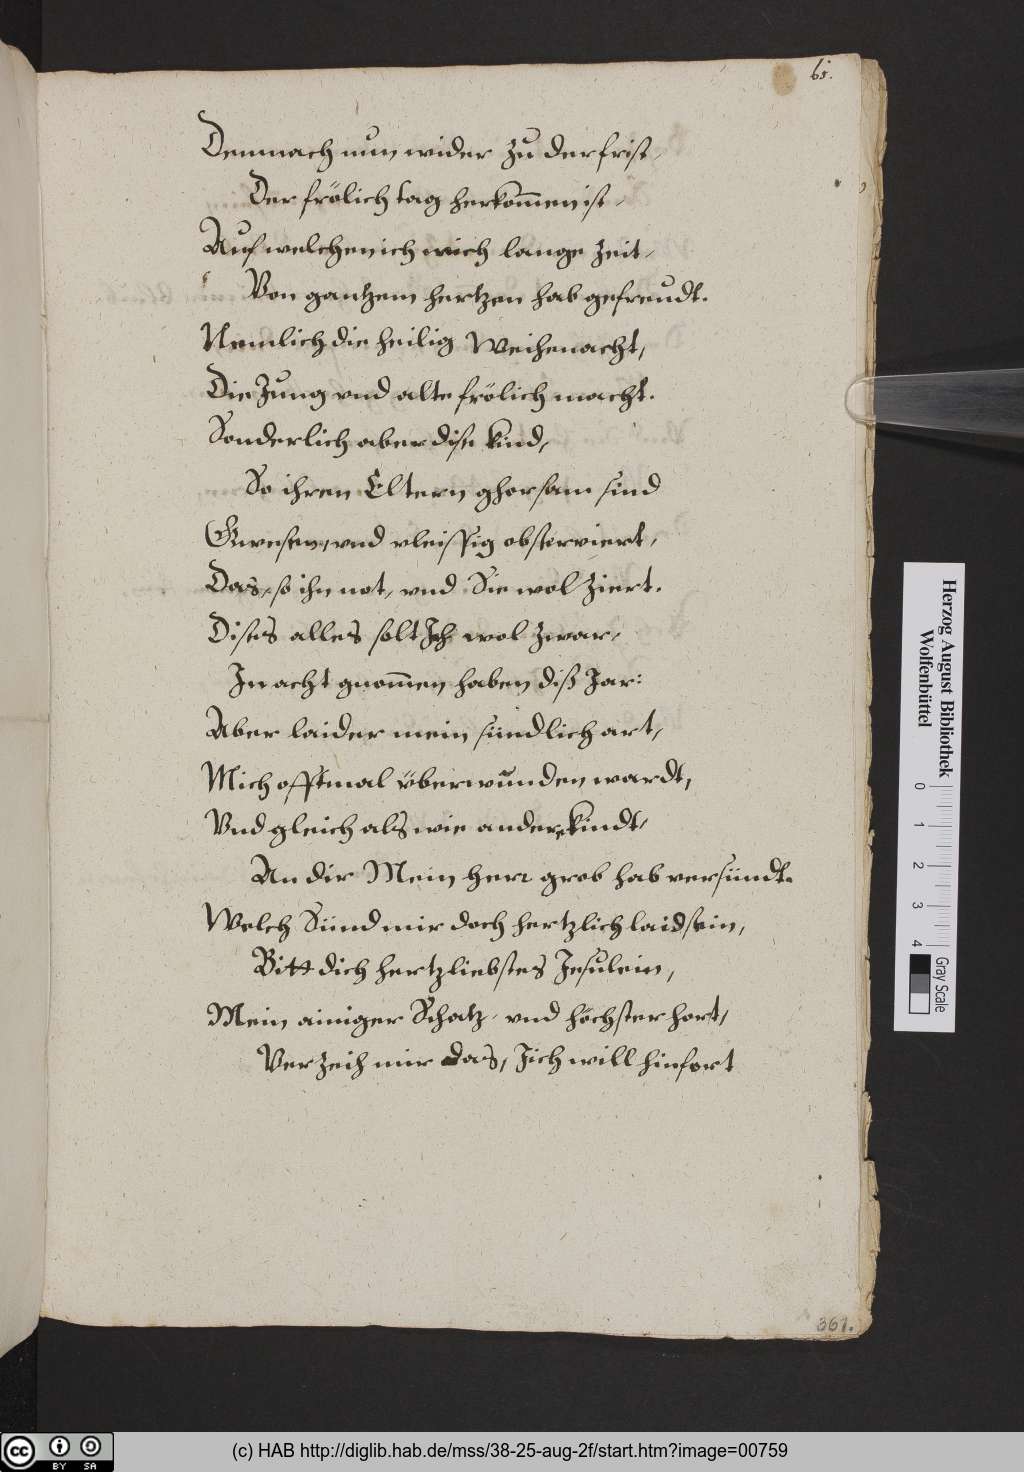 65.
Demnach nun wider zu der frist,
Der frölich tag herkom̄en ist,
Auf welchen ich mich lange zeit,
Von gantzem hertzen hab gefreudt.
Nemlich die heilig Weihenacht,
Die Jung vnd alte frölich macht.
Sonderlich aber dise kind,
So ihren Eltern ghorsam sind
Gwesen, vnd vleissig obsterviert,
Das, so ihn not, vnd Sie wol ziert.
Dises alles solt Ich wol zwar,
In acht gnom̄en haben diß Jar:
Aber laider mein sündlich art,
Mich offtmal überwunden wardt,
Vnd gleich als wie andere kindt,
An dir Mein herr grob hab versündt.
Welch Sünd mir doch hertzlich laid sein,
Bitt dich hertzliebstes Jesulein,
Mein ainiger Schatz, vnd höchster hort,
Verzeih mir das, Jich will hinfort
361.
Herzog August Bibliothek
Wolfenbüttel
0 1 2 3 4
Gray Scale
CC BY SA
(c) HAB http://diglib.hab.de/mss/38-25-aug-2f/start.htm?image=00759